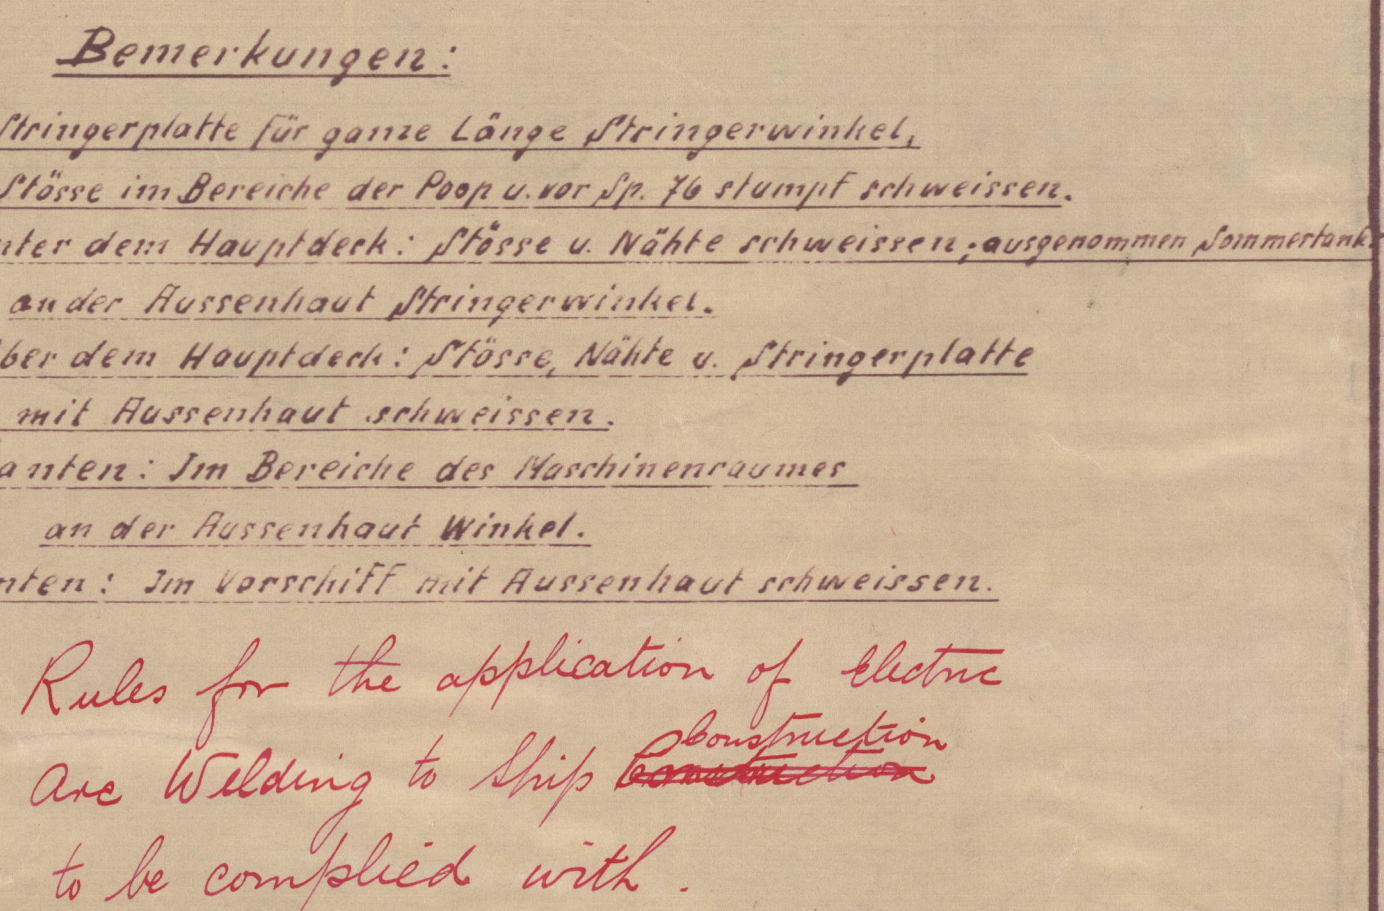 Bemerkungen:
Stringerplatte für ganze Länge Stringerwinkel,
Stösse im Bereiche der Poop u. vor Sp. 76 stumpf schweissen.
nter dem Hauptdeck: Stösse u. Nähte schweissen, ausgenommen Sommertank.
an der Aussenhaut Stringerwinkel.
ber dem Hauptdeck: Stösse, Nähte u. Stringerplatte
mit Aussenhaut schweissen.
anten: Im Bereiche des Maschinenraumes
an der Aussenhaut Winkel.
nten: Im Vorschiff mit Aussenhaut schweissen.
Rules for the application of Electric
Construction
Arc Welding to Ship Construction
to be complied with.